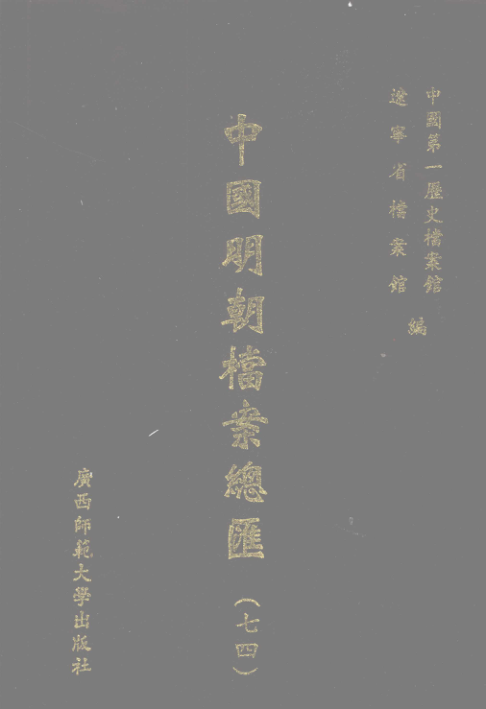 中國第一歷史檔案館
遼寧省檔案館
編
中國明朝檔案總匯
(七四)
廣西師範大學出版社